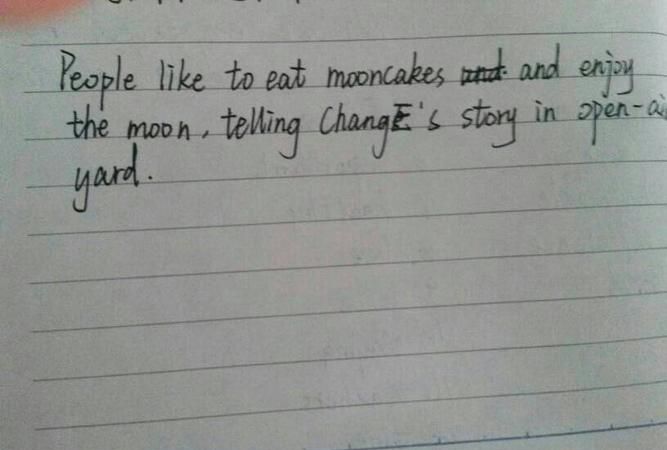 People like to eat mooncakes and and enjoy
the moon, telling ChangE's story in open-ai
yard.